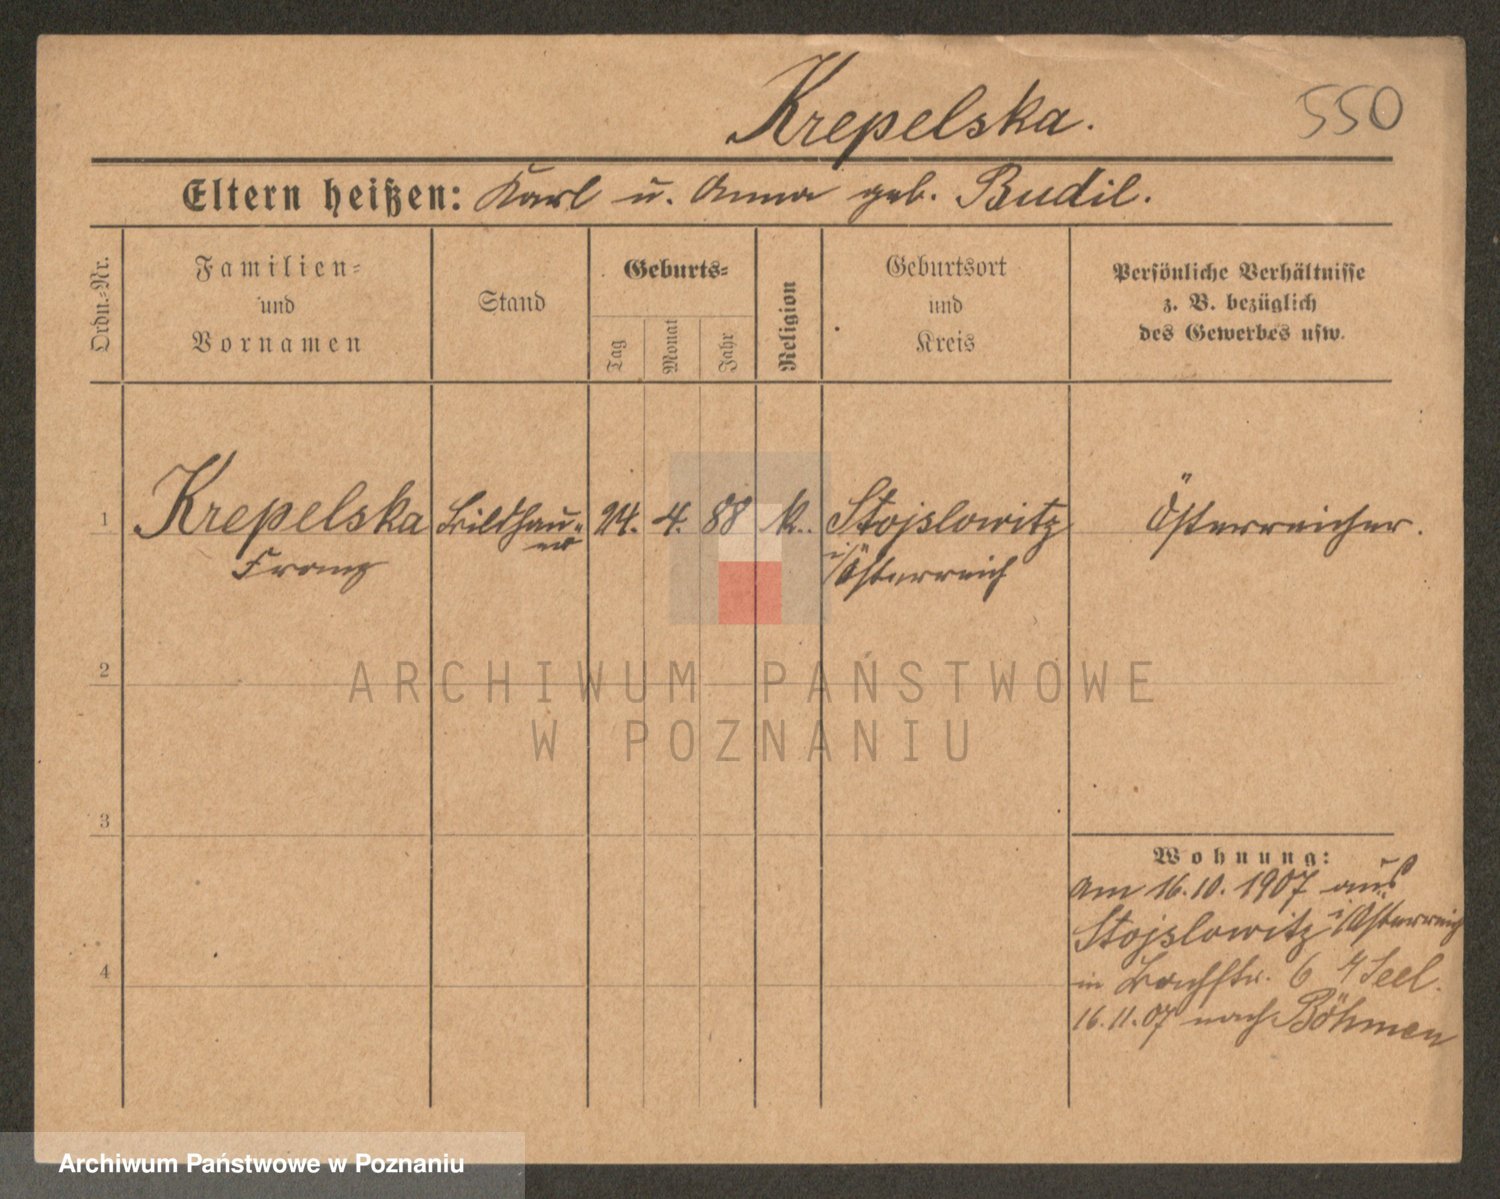 Krepelska.
550
Eltern heißen: Karl u. Anna geb. Budil.
Ordn.-Nr.
Familien-
und
Vornamen
Stand
Geburts-
Tag
Monat
Jahr
Religion
Geburtsort
und
Kreis
Persönliche Verhältnisse
z. B. bezüglich
des Gewerbes usw.
1 Krepelska Bildhau- 24. 4. 88 k. Stojslowitz Österreicher.
Franz er i/Österreich
2
ARCHIWUM PAŃSTWOWE
W POZNANIU
3
Wohnung:
am 16.10.1907 aus
Stojslowitz i/Österreich
4
in 6 Seel.
16.11.07 nach Böhmen
Archiwum Państwowe w Poznaniu